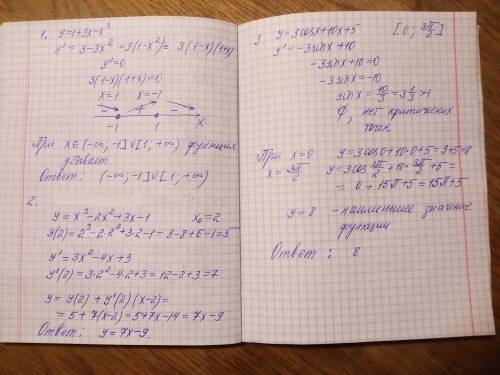 1. y=1+3x-x³
y' = 3-3x² = 3(1-x²) = 3(1-x)(1+x)
y'=0
3(1-x)(1+x)=0
x=1 x=-1
- + -
-1 1 x
При x∈(-∞,-1]∪[1;+∞) функция
убывает
Ответ: (-∞,-1]∪[1;+∞)
2.
y = x³-2x²+3x-1 x₀=2
y(2) = 2³-2·2²+3·2-1 = 8-8+6-1=5
y' = 3x²-4x+3
y'(2) = 3·2²-4·2+3 = 12-8+3=7
y = y(2) + y'(2)(x-2)=
= 5+7(x-2) = 5+7x-14 = 7x-9
Ответ: y=7x-9.
3. y = 3cosx+10x+5 [0; 3π/2]
y' = -3sinx+10
-3sinx+10=0
-3sinx=-10
sinx = 10/3 = 3 1/3 >1
∅, нет критических
точек
При x=0 y=3cos0+10·0+5=3+5=8
x = 3π/2 y=3cos 3π/2 + 10· 3π/2 +5 =
= 0 + 15π+5 = 15π+5
y = 8 - наименьшее значение
функции
Ответ: 8